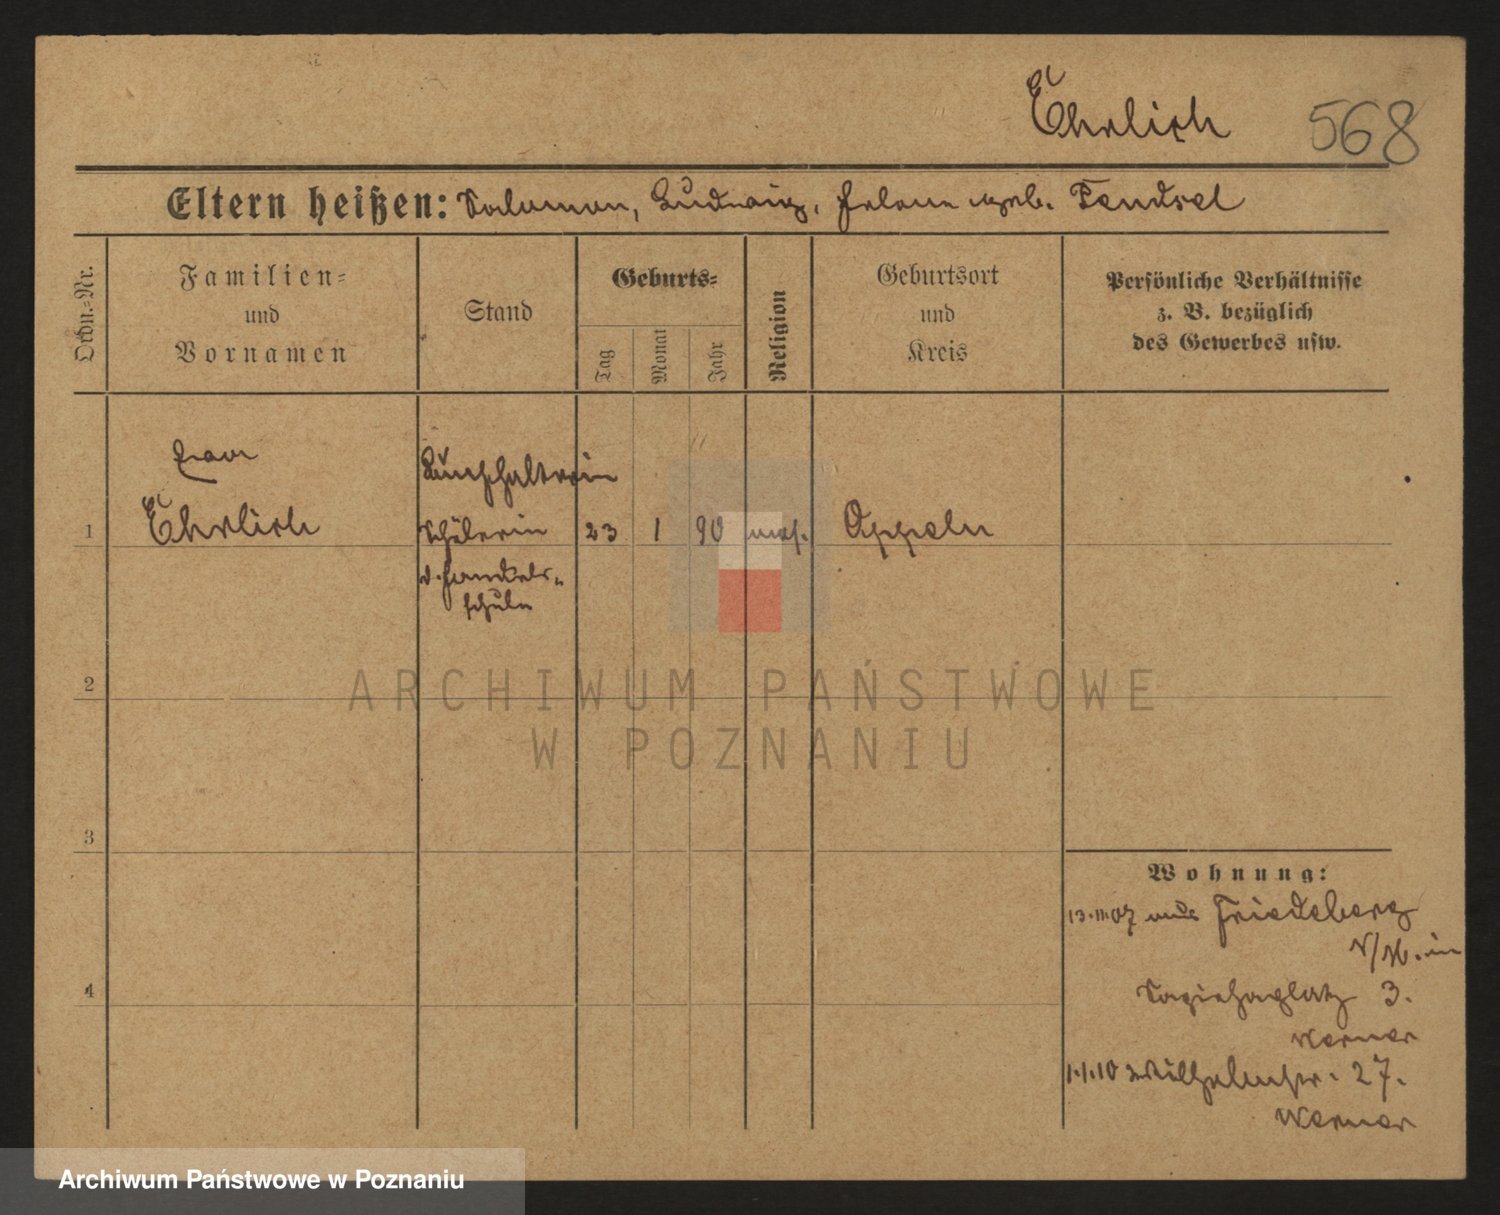 Ehrlich 568
Eltern heißen: Salomon, Ludwig, Helene geb. Tendsel
Ordn.-Nr.
Familien-
und
Vornamen
Stand
Geburts-
Tag
Monat
Jahr
Religion
Geburtsort
und
Kreis
Persönliche Verhältnisse
z. B. bezüglich
des Gewerbes usw.
Buchhalterin
1 Ehrlich Schülerin 23 1 90 mos. Oppeln
d. Handels-
schule
2
3
4
Wohnung:
13.11.07 aus Friedeberg
N/M. in
Sapiehaplatz 3.
Werner
1.1.10 Wilhelmstr. 27.
Werner
ARCHIWUM PAŃSTWOWE
W POZNANIU
Archiwum Państwowe w Poznaniu